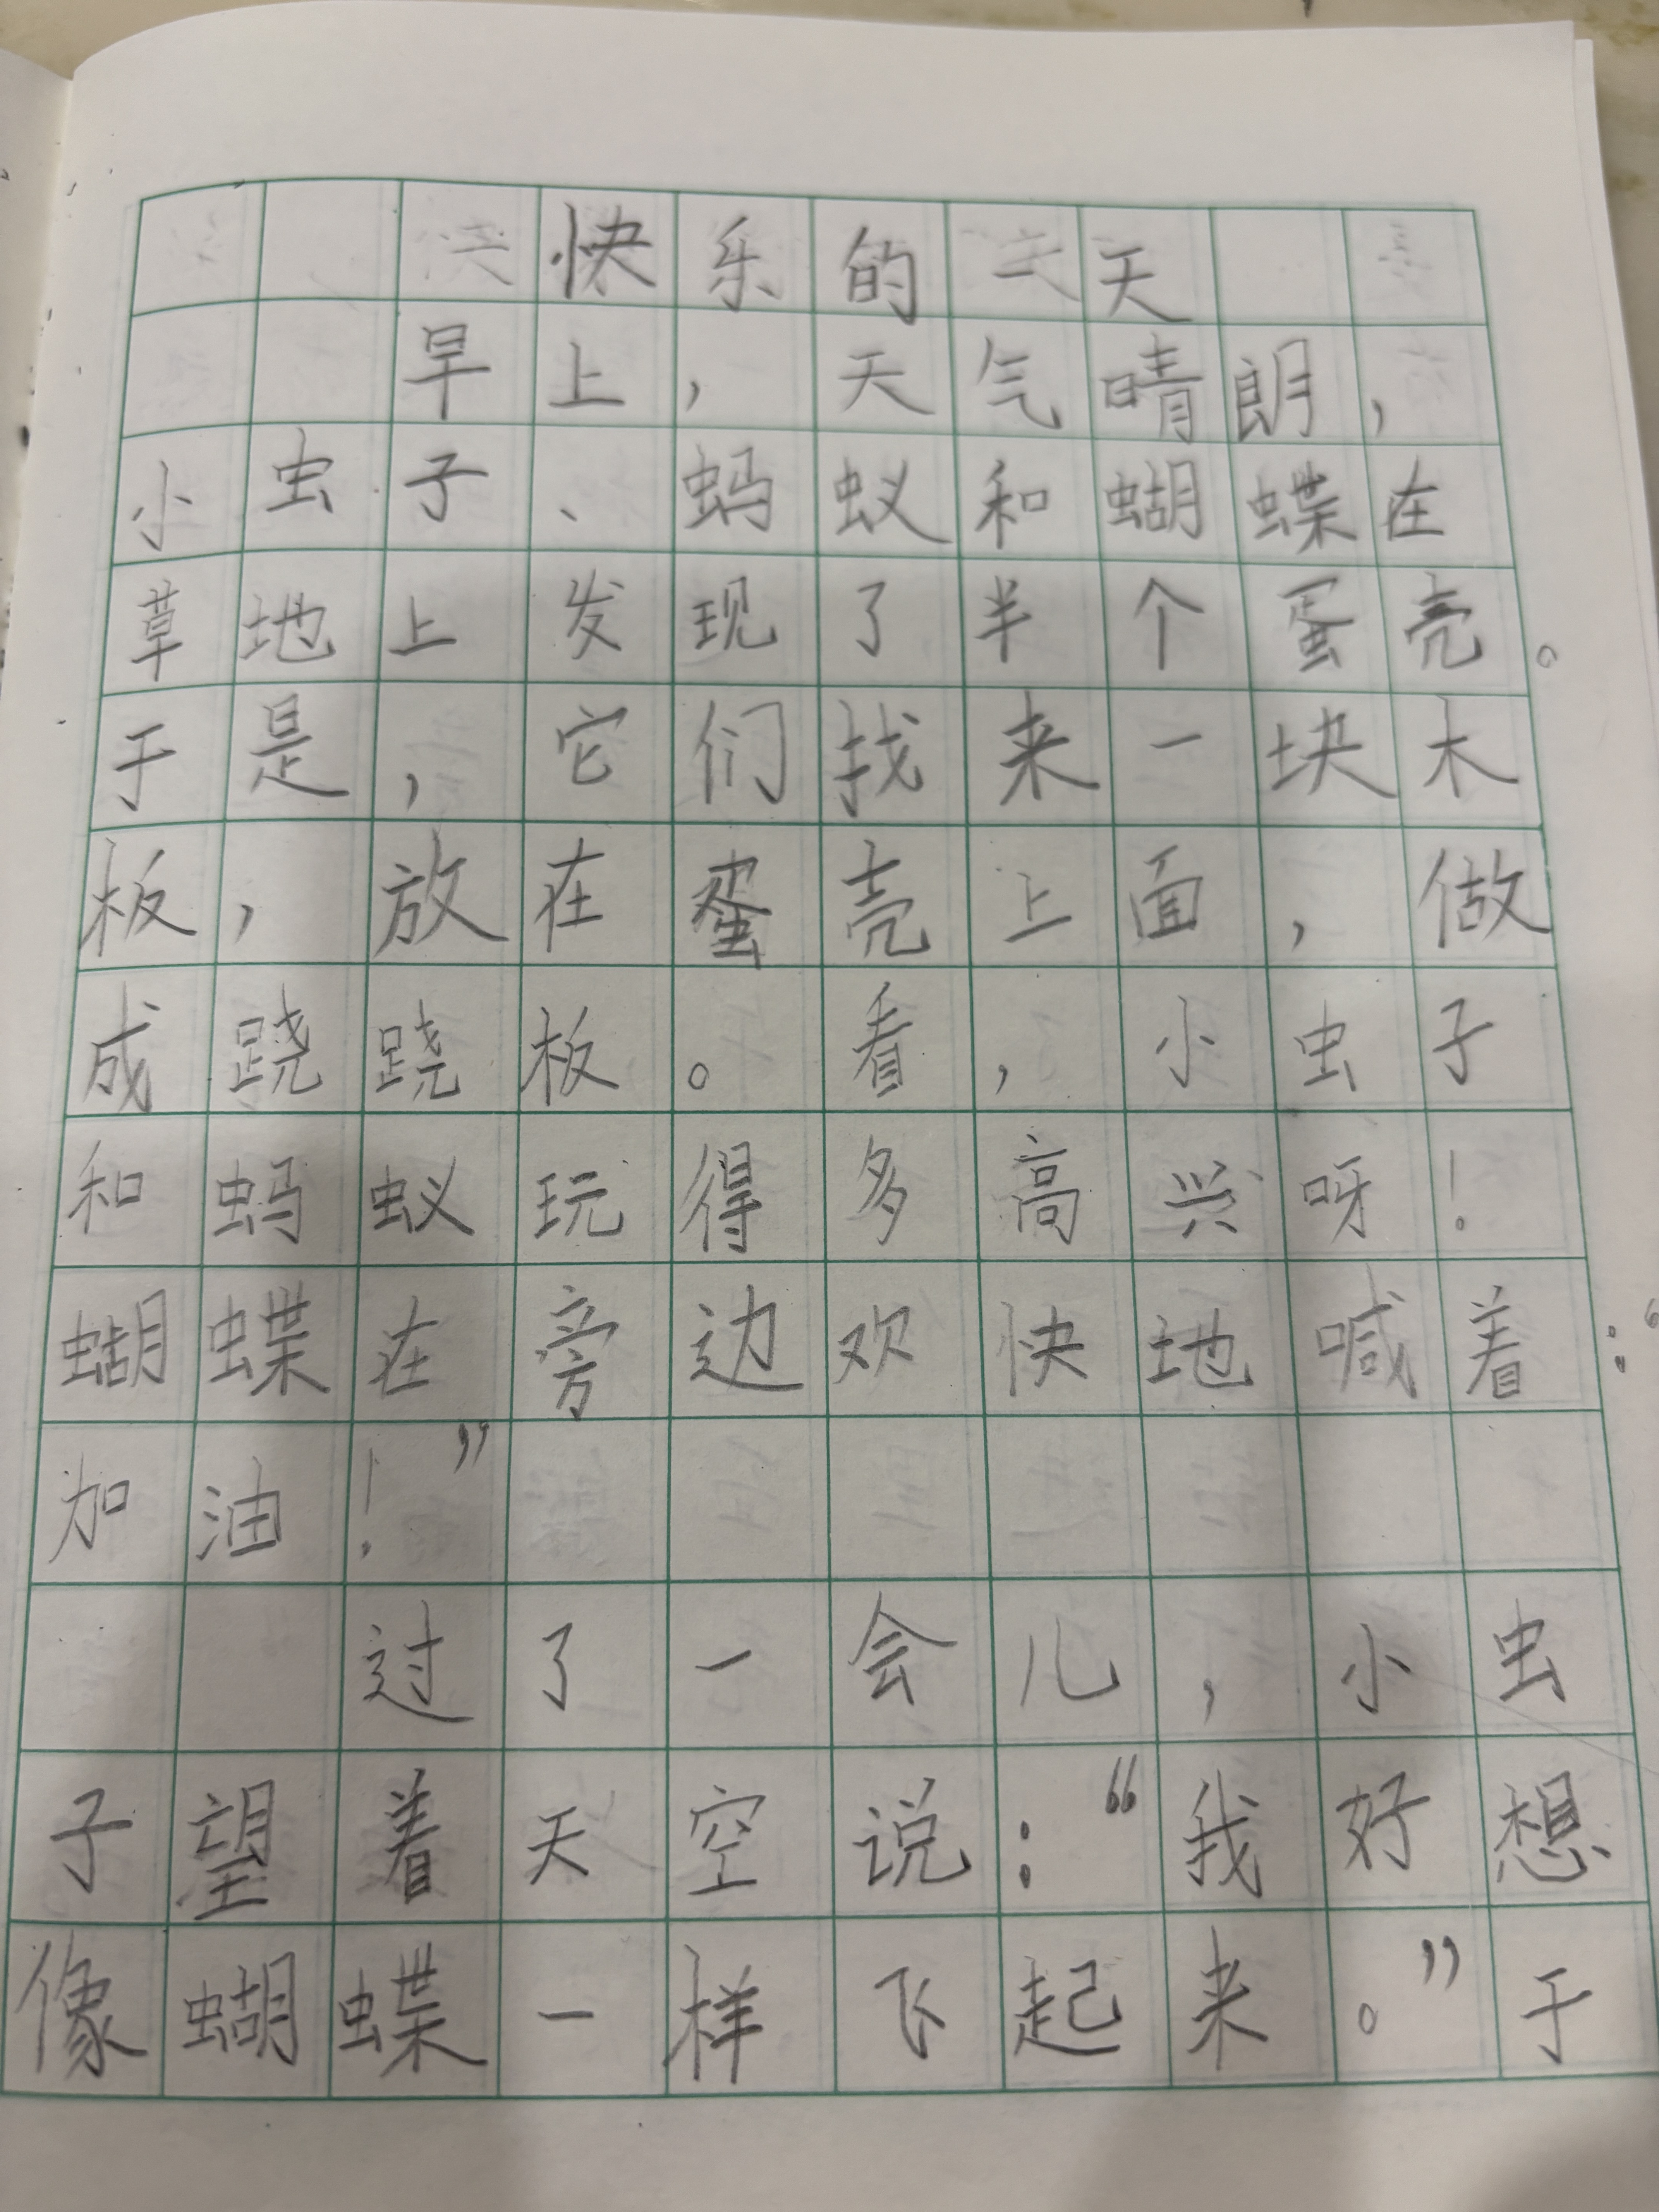 快乐的一天
早上，天气晴朗，
小虫子、蚂蚁和蝴蝶在
草地上发现了半个蛋壳。
于是，它们找来一块木
板，放在蛋壳上面，做
成跷跷板。看，小虫子
和蚂蚁玩得多高兴呀！
蝴蝶在旁边欢快地喊着：“
加油！”
过了一会儿，小虫
子望着天空说：“我好想
像蝴蝶一样飞起来。”于